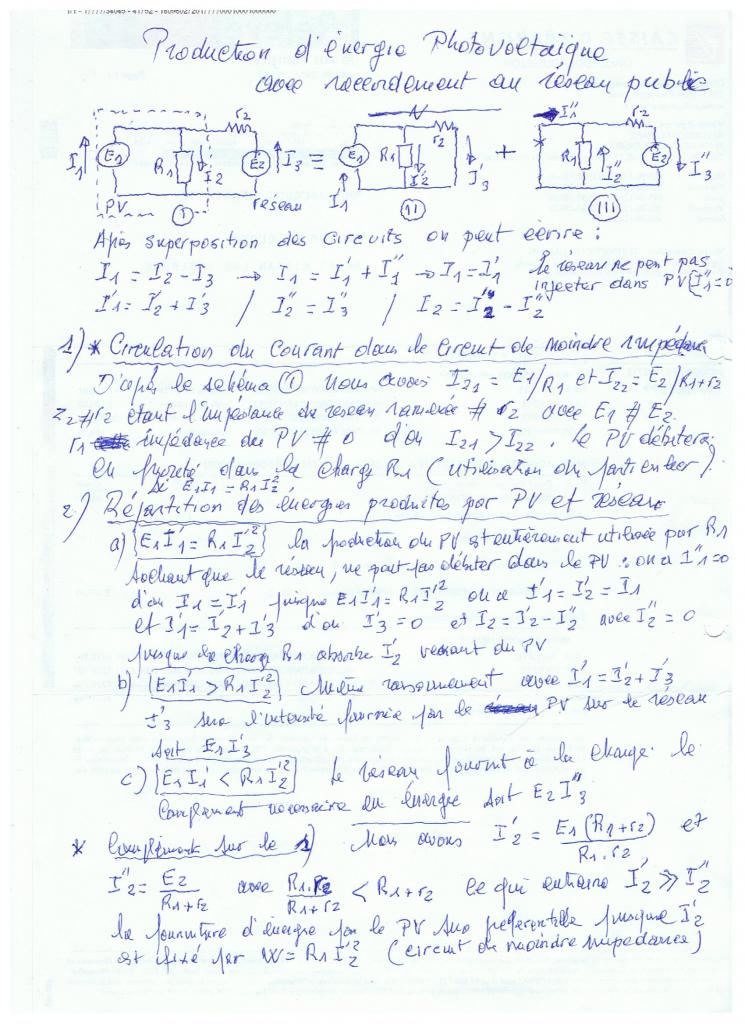 Production d'énergie Photovoltaïque
avec raccordement au réseau public
I1 E1 R1 I2 r2 E2 I3 ≡ E1 R1 I'2 r2 I'3 I1 + I''1 R1 I''2 r2 E2 I''3
PV I réseau II III
Après superposition des circuits on peut écrire :
I1 = I2 - I3 → I1 = I'1 + I''1 → I1 = I'1 le réseau ne peut pas
injecter dans PV (I''1 = 0
I'1 = I'2 + I'3 / I''2 = I''3 / I2 = I'2 - I''2
1) * Circulation du Courant dans le Circuit de moindre impédance
D'après le schéma (1) nous avons I21 = E1/R1 et I22 = E2/R1+r2
Z2 # r2 étant l'impédance du réseau ramenée # r2 avec E1 # E2.
r1 impédance du PV # 0 d'où I21 > I22. Le PV débitera
en priorité dans la charge R1 (utilisation du particulier).
Si E1I1 = R1I'2²
2) Répartition des énergies produites par PV et réseau
a) [E1I'1 = R1I'2²] la production du PV est entièrement utilisée par R1
sachant que le réseau, ne peut pas débiter dans le PV : on a I''1 = 0
d'où I1 = I'1 puisque E1I'1 = R1I'2² on a I'1 = I'2 = I1
et I'1 = I'2 + I'3 d'où I'3 = 0 et I2 = I'2 - I''2 avec I''2 = 0
puisque la charge R1 absorbe I'2 venant du PV
b) [E1I'1 > R1I'2²] même raisonnement avec I'1 = I'2 + I'3
I'3 sera l'intensité fournie par le PV sur le réseau
soit E1I'3
c) [E1I'1 < R1I'2²] Le réseau fournit à la charge le
complément nécessaire en énergie soit E2I''3
* Complément sur le 1) Nous avons I'2 = E1(R1+r2) / R1.r2 et
I''2 = E2 / R1+r2 avec R1.r2 / R1+r2 < R1+r2 ce qui entraine I'2 >> I''2
la fourniture d'énergie par le PV sera préférentielle puisque I'2
est fixé par W = R1I'2² (circuit de moindre impédance)